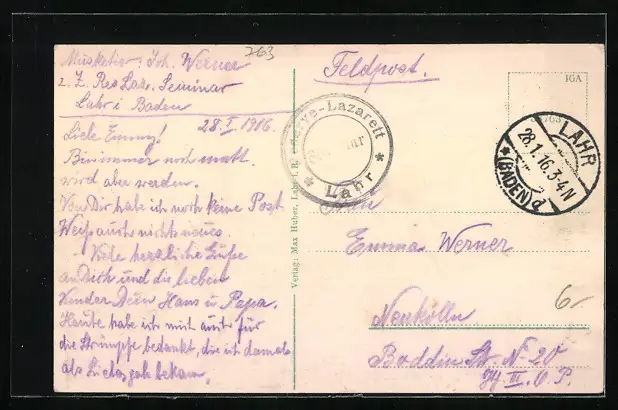 Musketier Joh. Werner
z. Z. Res Laz. Seminar
Lahr i Baden
28. I. 1916.
Liebe Emmy!
Bin immer noch matt.
wird aber werden.
Von Dir habe ich noch keine Post
Weiß auch nichts neues.
Viele herzliche Grüße
an Dich und die lieben
Kinder Dein Hans u Papa.
Heute habe ich mich auch für
die Strümpfe bedankt, die ich damals
als Liebesgab bekam.
263
Verlag: Max Huber, Lahr i. B.
Feldpost.
Reserve-Lazarett
* Lahr *
IGA
LAHR
28.1.16.3-4N
*(BADEN)d
Frau
Emma Werner
Neukölln
Boddin Str. N-20
II.
6-